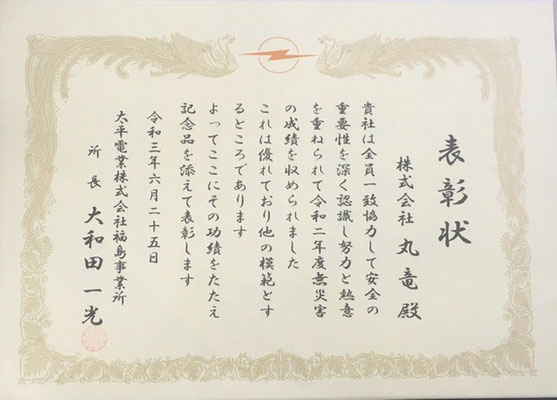 表彰状
株式会社 丸竜 殿
貴社は全員一致協力して安全の
重要性を深く認識し努力と熱意
を重ねられて令和二年度無災害
の成績を収められました
これは優れており他の模範とす
るところであります
よってここにその功績をたたえ
記念品を添えて表彰します
令和三年六月二十五日
太平電業株式会社福島事業所
所長 大和田一光